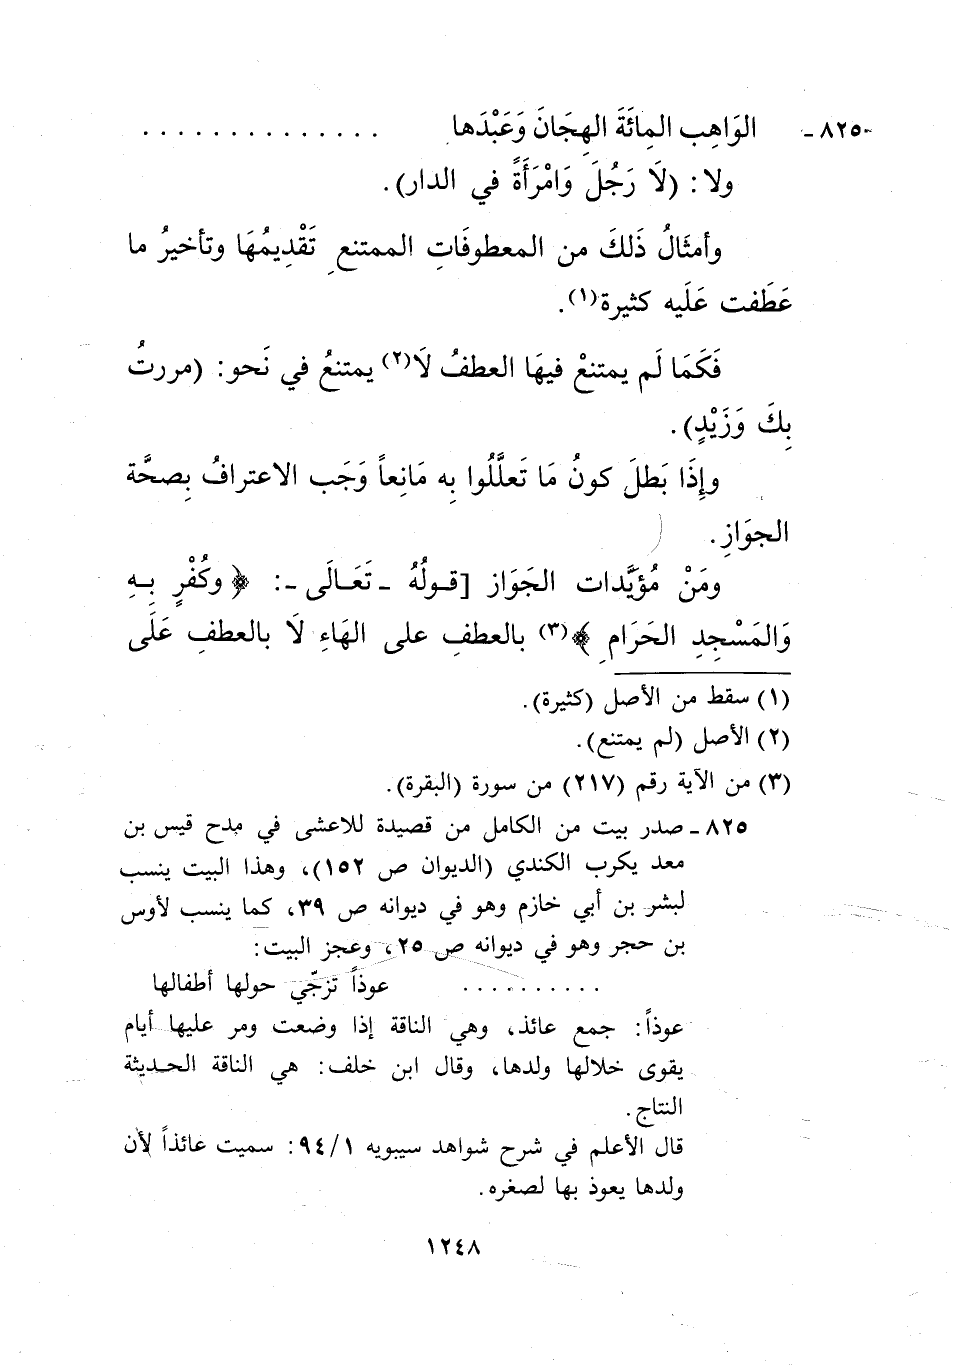 -٨٢٥- الوَاهِبِ المِائَةَ الهِجَانَ وَعَبْدَها . . . . . . . . . . . . . .
ولا: (لَا رَجُلَ وَامْرَأَةً في الدار).
وأمثَالُ ذَلكَ من المعطوفَاتِ الممتنعِ تَقْدِيمُهَا وتأخيرُ ما
عَطَفت عَلَيه كثيرة(١).
فَكَمَا لَم يمتنعْ فيهَا العطفُ لَا(٢) يمتنعُ في نَحو: (مررتُ
بِكَ وَزَيْدٍ).
وإِذَا بَطلَ كونُ مَا تَعلَّلُوا بِه مَانِعاً وَجَب الاعترافُ بِصحَّة
الجوَازِ.
ومَنْ مُؤيَّدات الجَوَاز [قـولُهُ ـ تَعَـالَى ـ: ﴿وكُفْرٍ بِـهِ
وَالمَسْجِدِ الحَرَامِ﴾(٣) بالعطفِ على الهَاءِ لَا بالعطفِ عَلَى
(١) سقط من الأصل (كثيرة).
(٢) الأصل (لم يمتنع).
(٣) من الآية رقم (٢١٧) من سورة (البقرة).
٨٢٥ـ صدر بيت من الكامل من قصيدة للاعشى في مدح قيس بن
معد يكرب الكندي (الديوان ص ١٥٢)، وهذا البيت ينسب
لبشر بن أبي خازم وهو في ديوانه ص ٣٩، كما ينسب لأوس
بن حجر وهو في ديوانه ص ٢٥، وعجز البيت:
. . . . . . . . . . عوذاً تزجّي حولها أطفالها
عوذاً: جمع عائذ، وهي الناقة إذا وضعت ومر عليها أيام
يقوى خلالها ولدها، وقال ابن خلف: هي الناقة الحديثة
النتاج.
قال الأعلم في شرح شواهد سيبويه ٩٤/١: سميت عائذاً لأن
ولدها يعوذ بها لصغره.
١٢٤٨